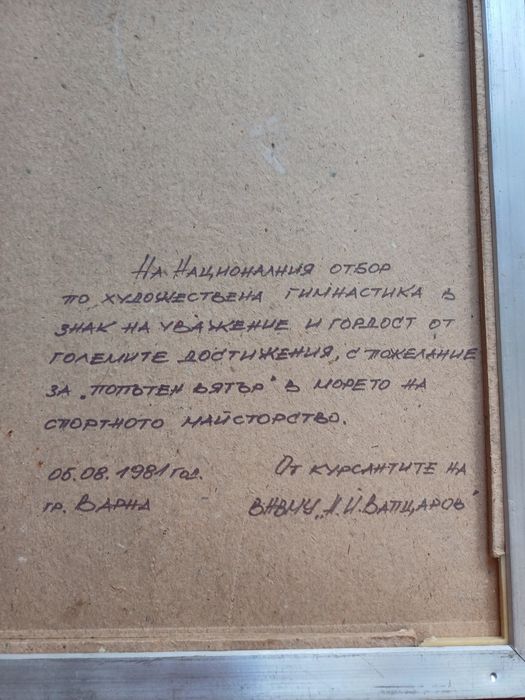 На Националния отбор
по художествена гимнастика в
знак на уважение и гордост от
големите достижения, с пожелание
за „попътен вятър" в морето на
спортното майсторство.
06.08.1981 год. От курсантите на
гр. Варна ВНВМУ „Н.Й.Вапцаров"